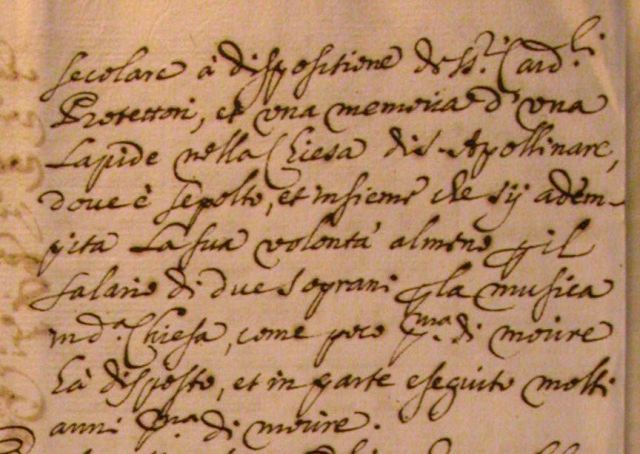 secolare à dispositione de SS.ri Card.li
Protettori, et una memoria d'una
Lapide nella Chiesa di S. Apollinare,
dove è sepolto, et insieme che sij adem-
pita la sua volontà almeno p il
salario di due soprani p la musica
in d.a Chiesa, come poco p.ma di morire
hà disposto, et in parte eseguito molti
anni p.ma di morire.